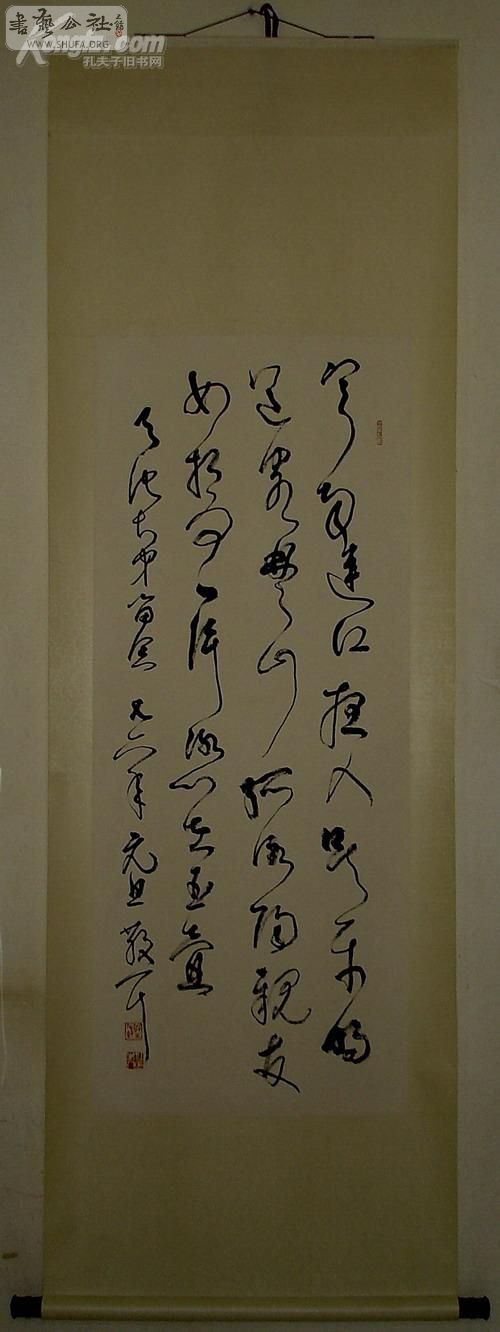 書藝公社
WWW.SHUFA.ORG
孔夫子旧书网
寒雨連江夜入吳平明
送客楚山孤洛陽親友
如相問一片冰心在玉壺
弟留念 九六年元旦